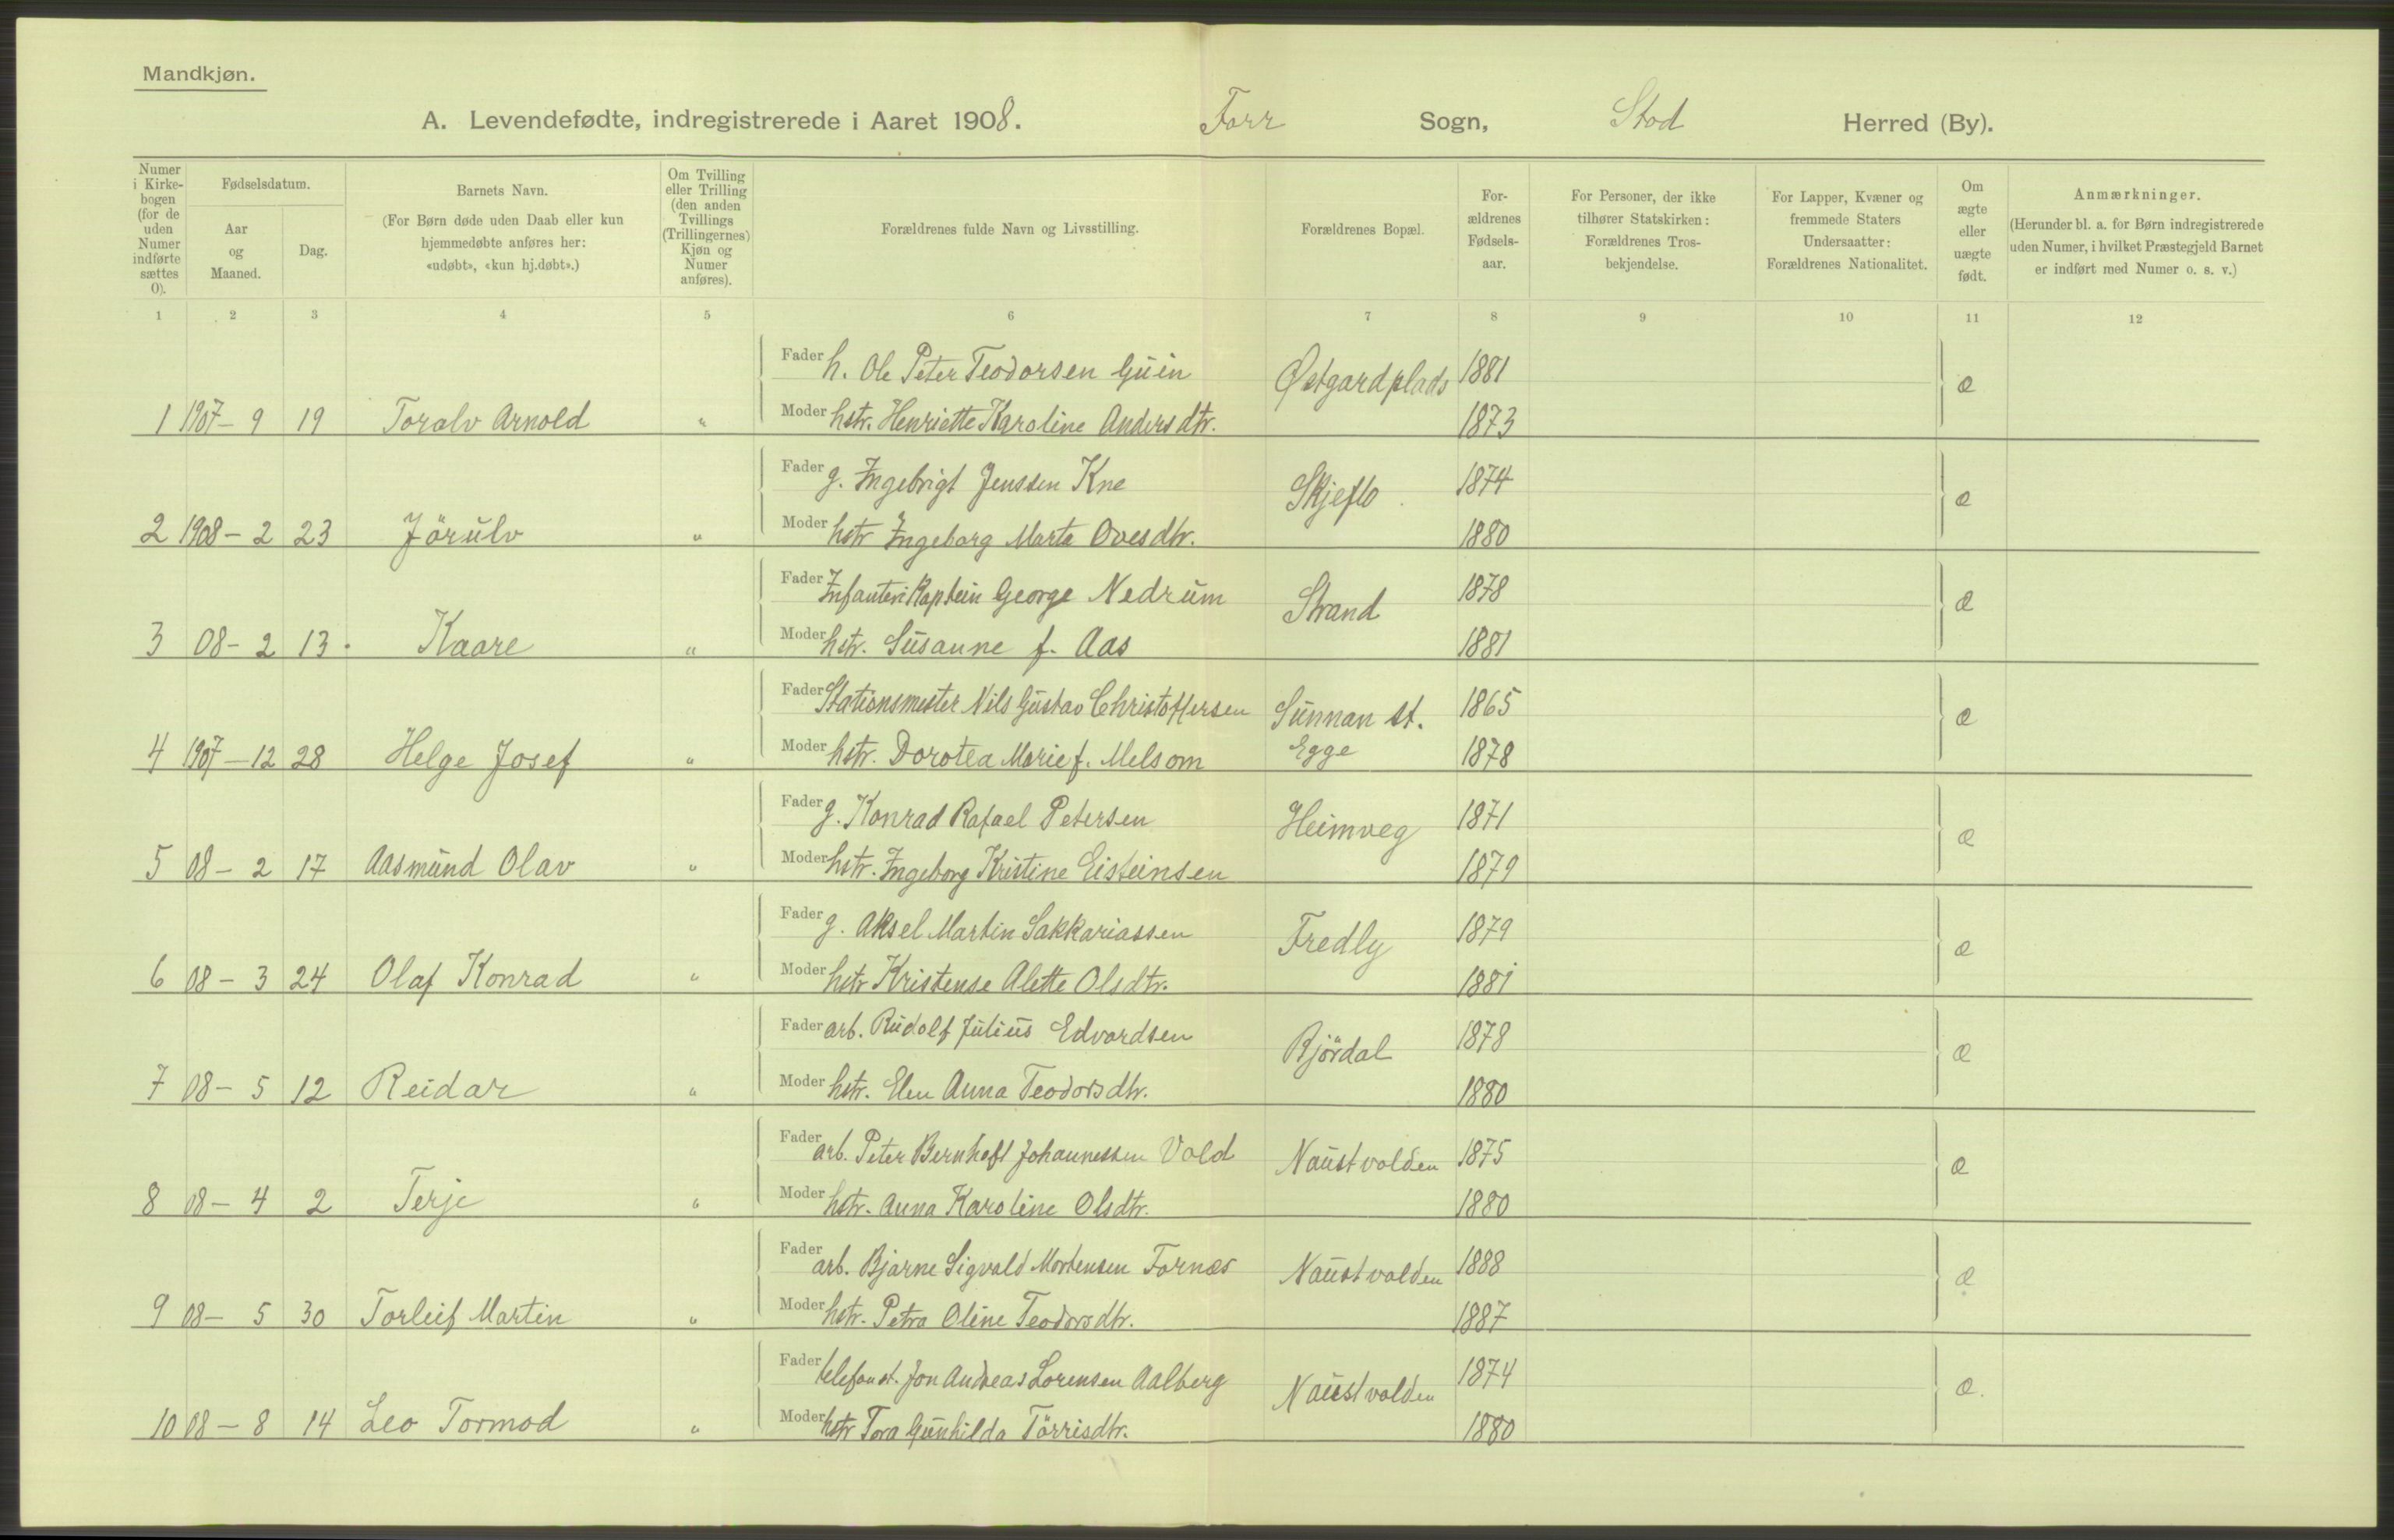 Mandkjøn.
A. Levendefødte, indregistrerede i Aaret 1908. For̄r Sogn, Stod Herred (By).
Numer i Kirkebogen (for de uden Numer indførte sættes 0).
Fødselsdatum.
Aar og Maaned.
Dag.
Barnets Navn.
(For Børn døde uden Daab eller kun hjemmedøbte anføres her: «udøbt», «kun hj.døbt».)
Om Tvilling eller Trilling (den anden Tvillings (Trillingernes) Kjøn og Numer anføres).
Forældrenes fulde Navn og Livsstilling.
Forældrenes Bopæl.
Forældrenes Fødselsaar.
For Personer, der ikke tilhører Statskirken: Forældrenes Trosbekjendelse.
For Lapper, Kvæner og fremmede Staters Undersaatter: Forældrenes Nationalitet.
Om ægte eller uægte født.
Anmærkninger.
(Herunder bl. a. for Børn indregistrerede uden Numer, i hvilket Præstegjeld Barnet er indført med Numer o. s. v.)
1 2 3 4 5 6 7 8 9 10 11 12
Fader h. Ole Peter Teodorsen Guin Østgardplads 1881 æ
1 1907-9 19 Toralv Arnold " Moder hstr. Henriette Karoline Andersdtr. 1873
Fader g. Ingebrigt Jenssen Kne Skjeflo. 1874 æ
2 1908-2 23 Jörulv " Moder hstr Ingeborg Marta Ovesdtr. 1880
Fader Infanterikaptein George Nedrum Strand 1878 æ
3 08-2 13. Kaare " Moder hstr. Susanne f. Aas 1881
Fader Stationsmester Nils Gustav Christoffersen Sunnan st. 1865 æ
4 1907-12 28 Helge Josef " Moder hstr. Dorotea Marie f. Melsom Egge 1878
Fader g. Konrad Rafael Petersen Heimveg 1871 æ
5 08-2 17 Aasmund Olav " Moder hstr. Ingeborg Kristine Eisteinsen 1879
Fader g. Aksel Martin Sakkariassen Fredly 1879 æ
6 08-3 24 Olaf Konrad " Moder hstr Kristense Alette Olsdtr. 1881
Fader arb. Rudolf Julius Edvardsen Björdal 1878 æ
7 08-5 12 Reidar " Moder hstr. Elen Anna Teodorsdtr. 1880
Fader arb. Peter Bernhoft Johannessen Vold Naustvolden 1875 æ
8 08-4 2 Terje " Moder hstr. Anna Karoline Olsdtr. 1880
Fader arb. Bjarne Sigvald Mortensen Fornæs Naustvolden 1888 æ
9 08-5 30 Torleif Martin " Moder hstr. Petra Oline Teodorsdtr. 1887
Fader telefonst. Jon Andreas Lorensen Aalberg Naustvolden 1874 æ.
10 08-8 14 Leo Tormod " Moder hstr Tora Gunhilda Törrisdtr. 1880